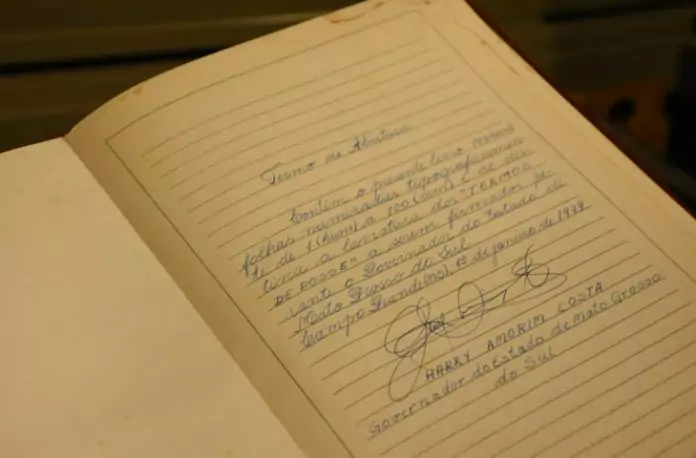 Termo de Abertura
Contém o presente livro
folhas numeradas tipograficamen-
te de 1 (hum) a 100 (cem) e se des-
tina a lavratura dos "TERMOS
DE POSSE" a serem firmados pe-
rante o Governador do Estado de
Mato Grosso do Sul
Campo Grande (MS), 1º de janeiro de 1979
HARRY AMORIM COSTA
Governador do Estado de Mato Grosso
do Sul